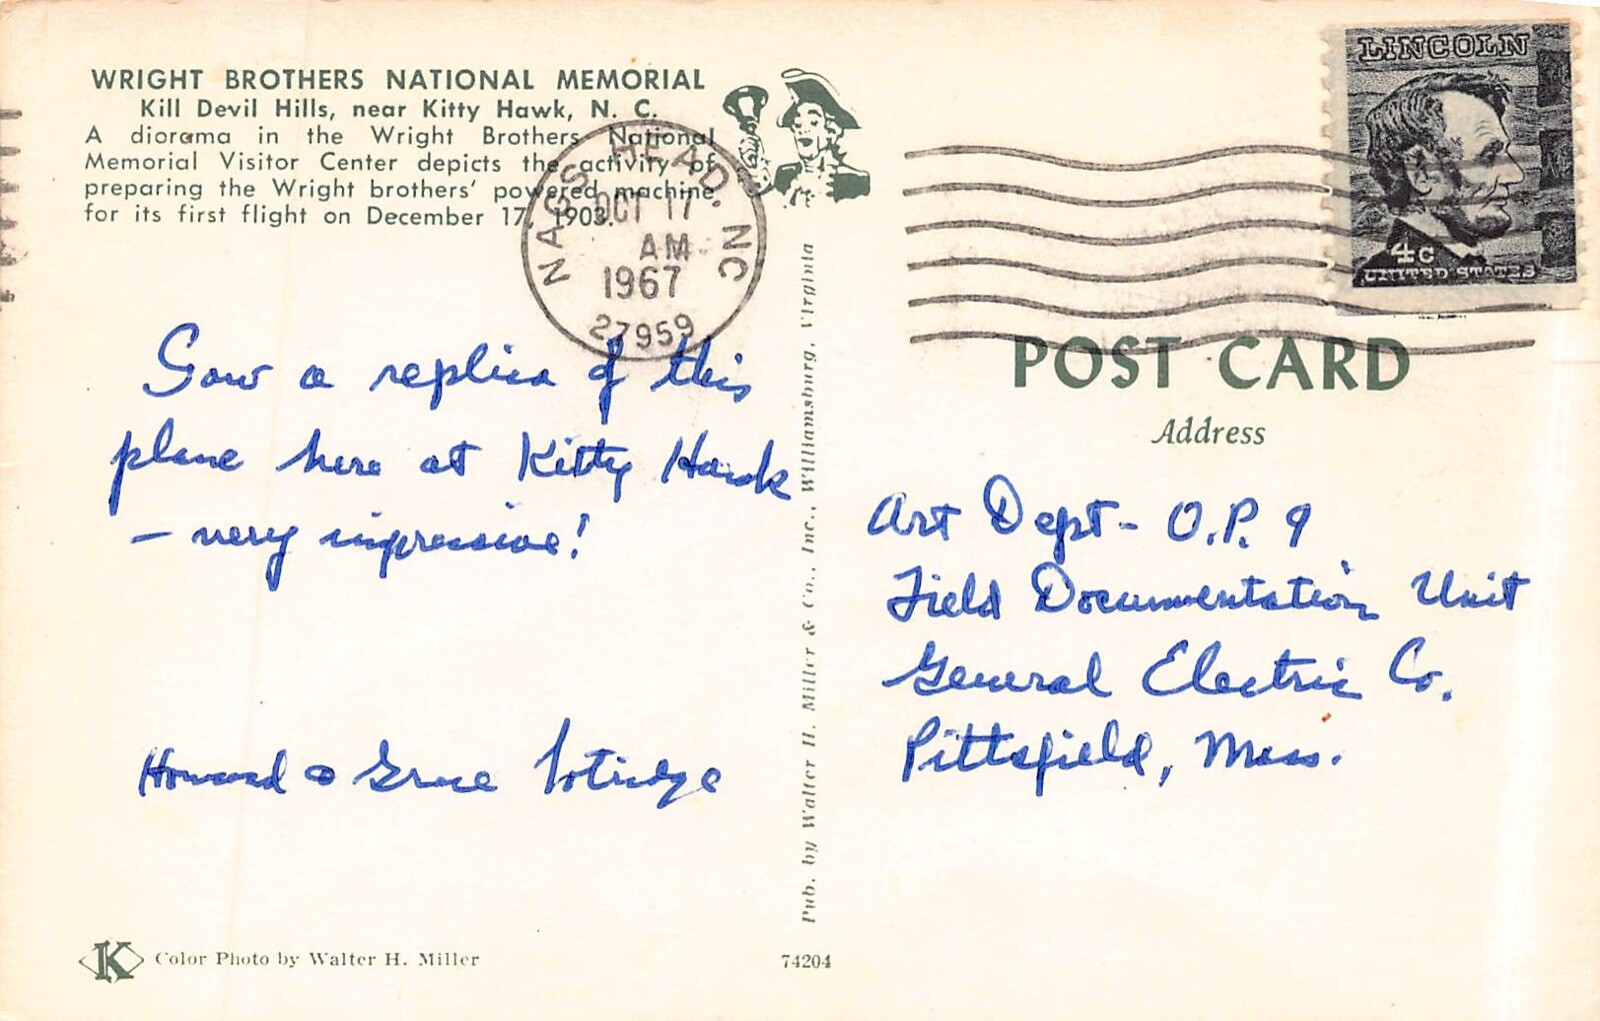 WRIGHT BROTHERS NATIONAL MEMORIAL
Kill Devil Hills, near Kitty Hawk, N. C.
A diorama in the Wright Brothers National
Memorial Visitor Center depicts the activity of
preparing the Wright brothers' powered machine
for its first flight on December 17, 1903.
NAGS HEAD, NC
OCT 17
AM
1967
27959
LINCOLN
4c
UNITED STATES
Saw a replica of this
plane here at Kitty Hawk
– very impressive!
Howard & Grace
POST CARD
Address
Art Dept - O.P. 9
Field Documentation Unit
General Electric Co.
Pittsfield, Mass.
Pub. by Walter H. Miller & Co., Inc., Williamsburg, Virginia
K
Color Photo by Walter H. Miller
74204